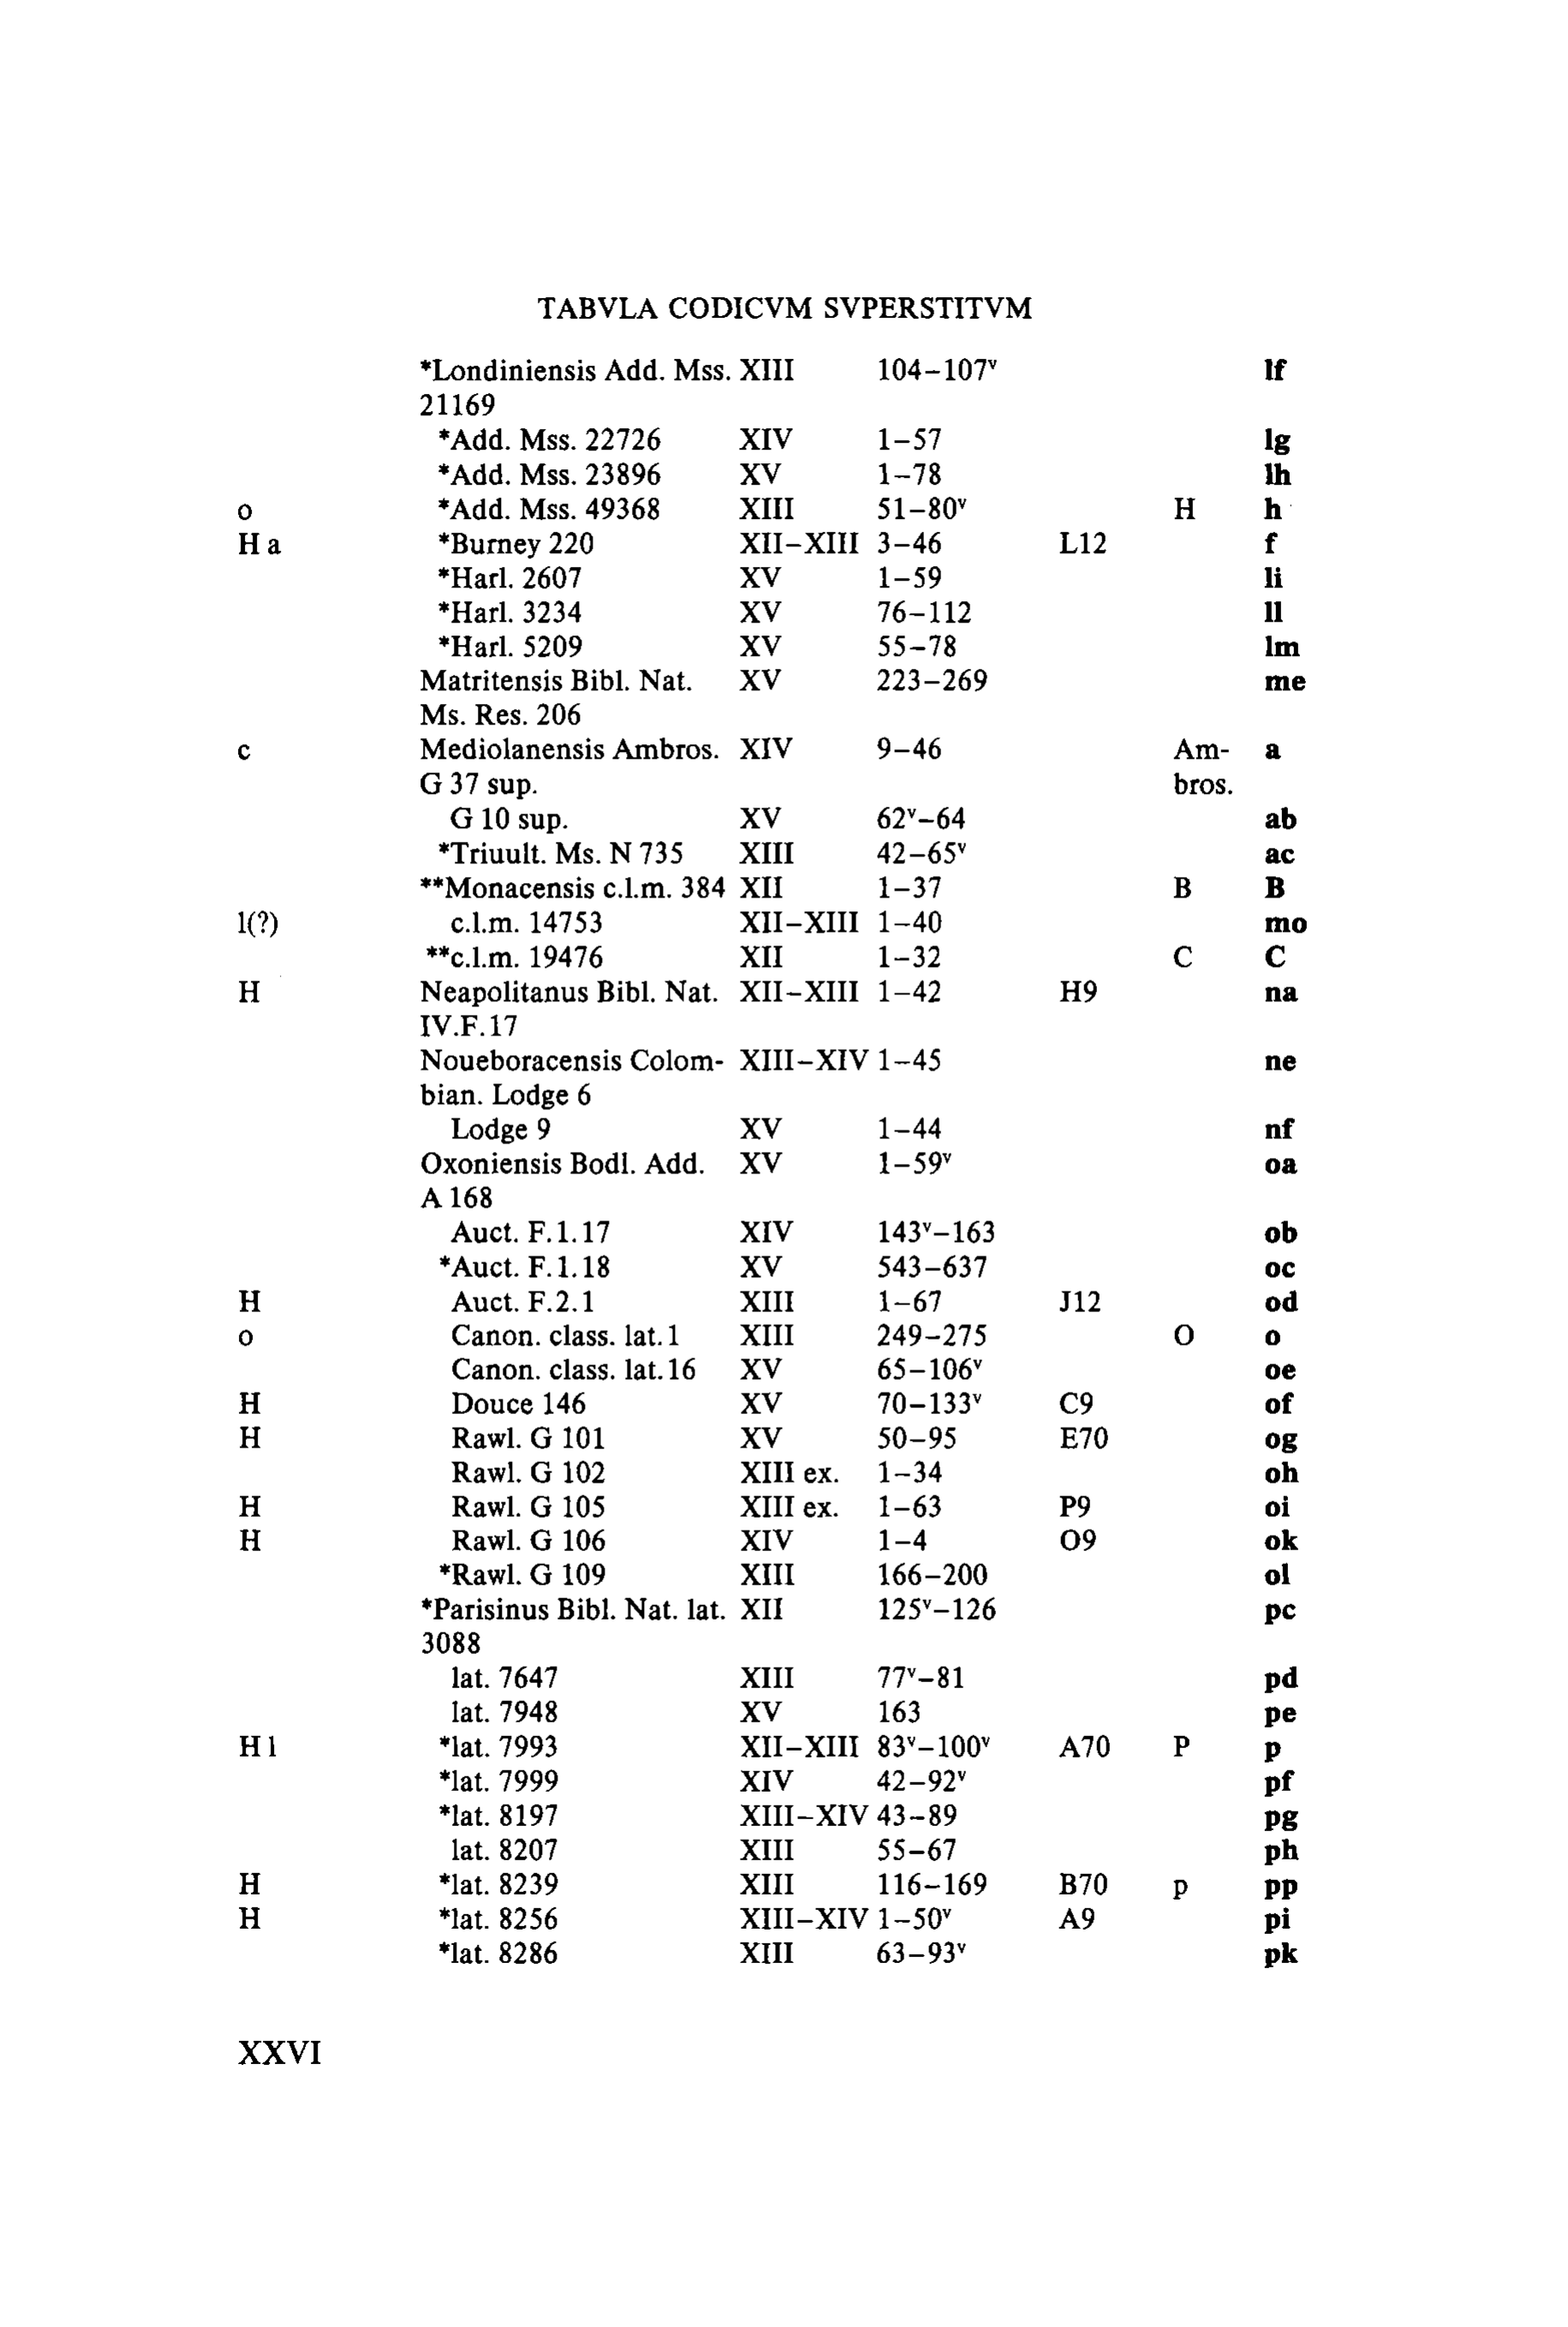 TABVLA CODICVM SVPERSTITVM
*Londiniensis Add. Mss. XIII 104–107ᵛ lf
21169
*Add. Mss. 22726 XIV 1–57 lg
*Add. Mss. 23896 XV 1–78 lh
o *Add. Mss. 49368 XIII 51–80ᵛ H h
H a *Burney 220 XII–XIII 3–46 L12 f
*Harl. 2607 XV 1–59 li
*Harl. 3234 XV 76–112 ll
*Harl. 5209 XV 55–78 lm
Matritensis Bibl. Nat. XV 223–269 me
Ms. Res. 206
c Mediolanensis Ambros. XIV 9–46 Am- a
G 37 sup. bros.
G 10 sup. XV 62ᵛ–64 ab
*Triuult. Ms. N 735 XIII 42–65ᵛ ac
**Monacensis c.l.m. 384 XII 1–37 B B
l(?) c.l.m. 14753 XII–XIII 1–40 mo
**c.l.m. 19476 XII 1–32 C C
H Neapolitanus Bibl. Nat. XII–XIII 1–42 H9 na
IV.F.17
Noueboracensis Colom- XIII–XIV 1–45 ne
bian. Lodge 6
Lodge 9 XV 1–44 nf
Oxoniensis Bodl. Add. XV 1–59ᵛ oa
A 168
Auct. F.1.17 XIV 143ᵛ–163 ob
*Auct. F.1.18 XV 543–637 oc
H Auct. F.2.1 XIII 1–67 J12 od
o Canon. class. lat. 1 XIII 249–275 O o
Canon. class. lat. 16 XV 65–106ᵛ oe
H Douce 146 XV 70–133ᵛ C9 of
H Rawl. G 101 XV 50–95 E70 og
Rawl. G 102 XIII ex. 1–34 oh
H Rawl. G 105 XIII ex. 1–63 P9 oi
H Rawl. G 106 XIV 1–4 O9 ok
*Rawl. G 109 XIII 166–200 ol
*Parisinus Bibl. Nat. lat. XII 125ᵛ–126 pc
3088
lat. 7647 XIII 77ᵛ–81 pd
lat. 7948 XV 163 pe
H l *lat. 7993 XII–XIII 83ᵛ–100ᵛ A70 P p
*lat. 7999 XIV 42–92ᵛ pf
*lat. 8197 XIII–XIV 43–89 pg
lat. 8207 XIII 55–67 ph
H *lat. 8239 XIII 116–169 B70 p pp
H *lat. 8256 XIII–XIV 1–50ᵛ A9 pi
*lat. 8286 XIII 63–93ᵛ pk
XXVI